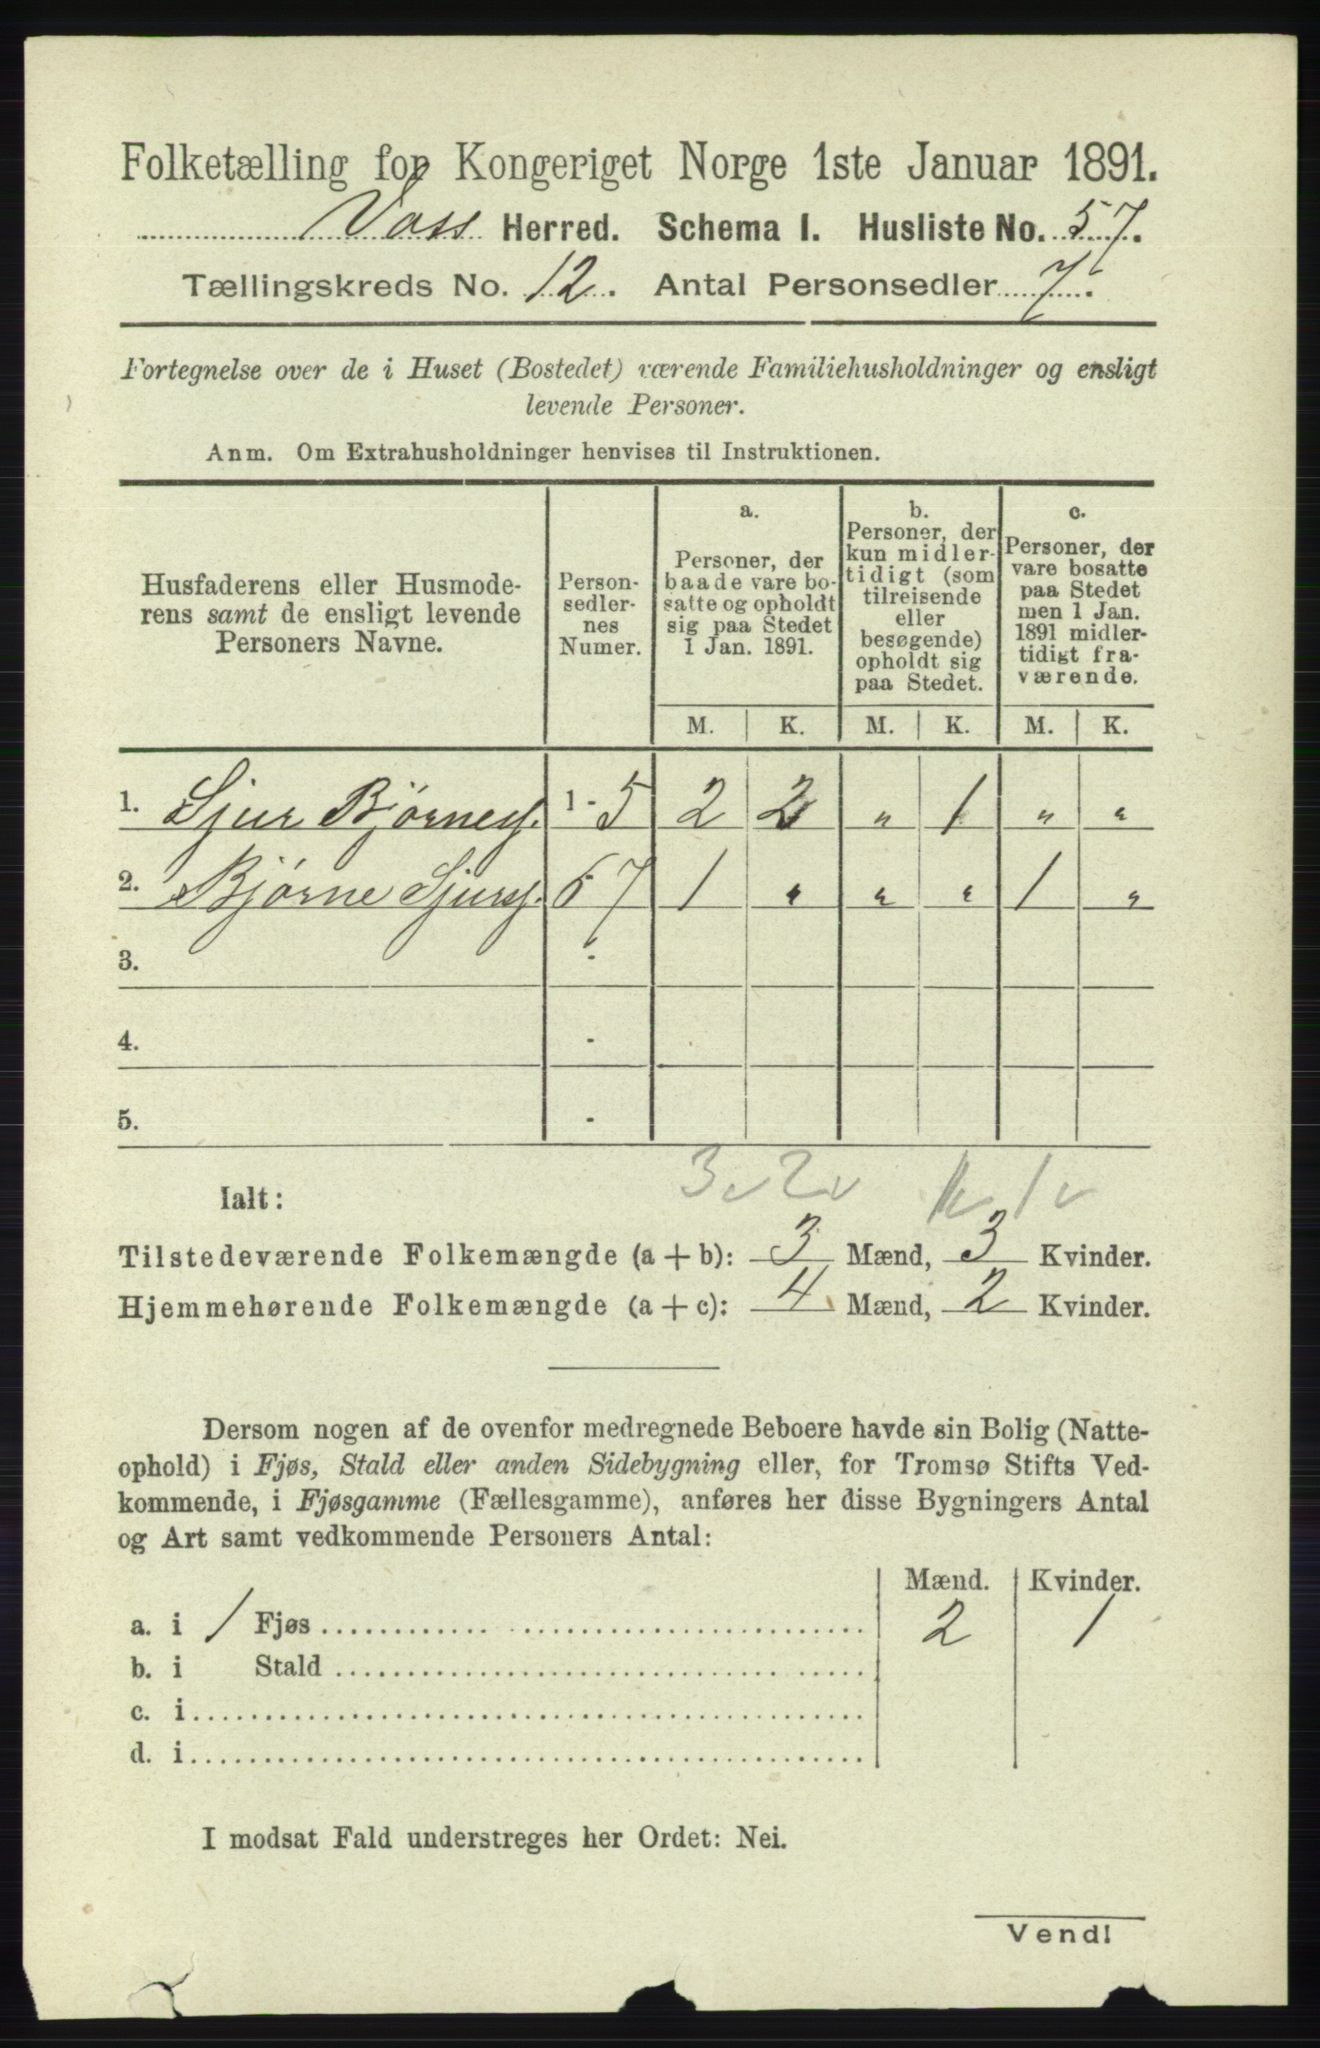 Folketælling for Kongeriget Norge 1ste Januar 1891.
Voss Herred. Schema I. Husliste No. 57.
Tællingskreds No. 12. Antal Personsedler 7.
Fortegnelse over de i Huset (Bostedet) værende Familiehusholdninger og ensligt
levende Personer.
Anm. Om Extrahusholdninger henvises til Instruktionen.
Husfaderens eller Husmode-
rens samt de ensligt levende
Personers Navne.
Person-
sedler-
nes
Numer.
a.
Personer, der
baade vare bo-
satte og opholdt
sig paa Stedet
1 Jan. 1891.
b.
Personer, der
kun midler-
tidigt (som
tilreisende
eller
besøgende)
opholdt sig
paa Stedet.
c.
Personer, der
vare bosatte
paa Stedet
men 1 Jan.
1891 midler-
tidigt fra-
værende.
M. K. M. K. M. K.
1. Sjur Bjørnes. 1-5 2 2 " 1 " "
2. Bjørne Sjurs. 6 7 1 " " " 1 "
3. -
4. -
5. -
3 2 1 1
Ialt:
Tilstedeværende Folkemængde (a+b): 3 Mænd, 3 Kvinder.
Hjemmehørende Folkemængde (a+c): 4 Mænd, 2 Kvinder.
Dersom nogen af de ovenfor medregnede Beboere havde sin Bolig (Natte-
ophold) i Fjøs, Stald eller anden Sidebygning eller, for Tromsø Stifts Ved-
kommende, i Fjøsgamme (Fællesgamme), anføres her disse Bygningers Antal
og Art samt vedkommende Personers Antal:
Mænd. Kvinder.
a. i 1 Fjøs 2 1
b. i Stald
c. i
d. i
I modsat Fald understreges her Ordet: Nei.
Vend!